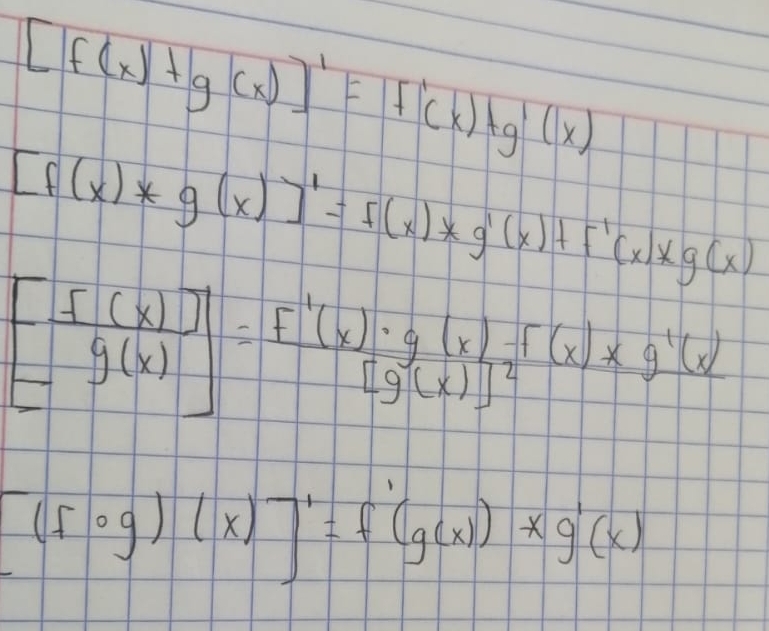 [f(x)+g(x)]' = f'(x)+g'(x)
[f(x)*g(x)]' = f(x)*g'(x)+f'(x)*g(x)
[f(x)/g(x)] = f'(x)·g(x)-f(x)*g'(x)/[g(x)]²
[(f∘g)(x)]' = f'(g(x))*g'(x)